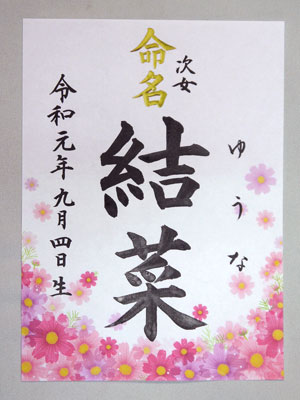 命名
次女
ゆうな
結菜
令和元年九月四日生